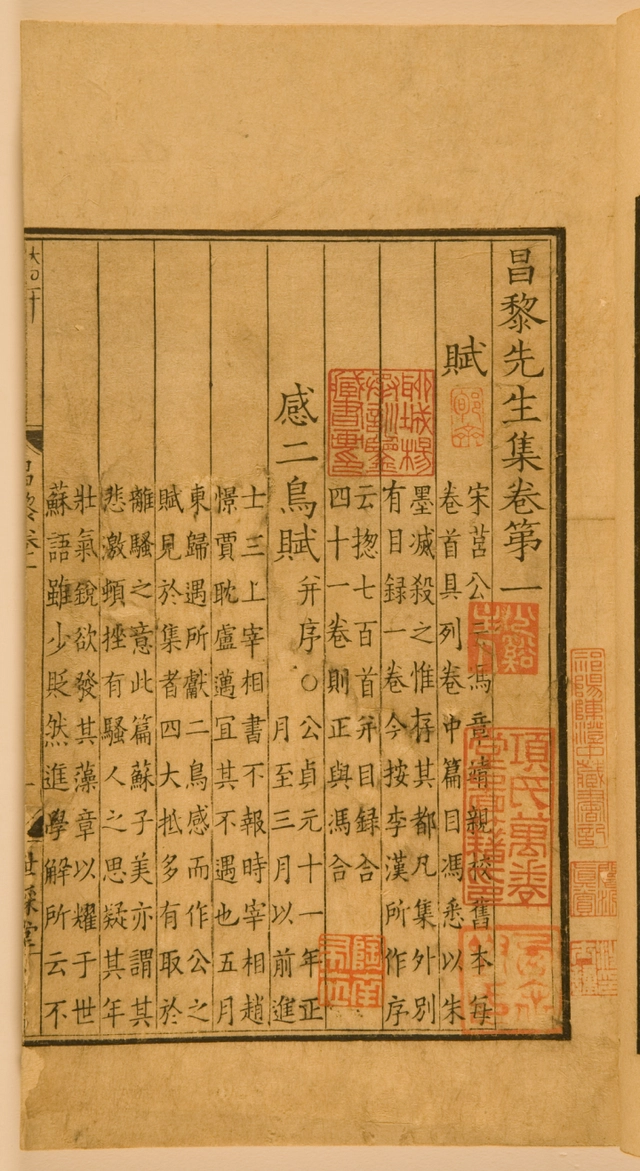 昌黎先生集卷第一
賦
宋莒公云馮章靖親校舊本每
卷首具列卷中篇目馮悉以朱
墨滅殺之惟存其都凡集外別
有目録一卷今按李漢所作序
云揔七百首并目録合
四十一卷則正與馮合
感二鳥賦
并序○公貞元十一年正
月至三月以前進
士三上宰相書不報時宰相趙
憬賈耽盧邁宜其不遇也五月
東歸遇所獻二鳥感而作公之
賦見於集者四大抵多有取於
離騷之意此篇蘇子美亦謂其
悲激頓挫有騷人之思疑其年
壯氣銳欲發其藻章以耀于世
蘇語雖少貶然進學解所云不
昌黎卷一
世綵堂
項氏萬卷堂圖籍印
祁陽陳澄中藏書記